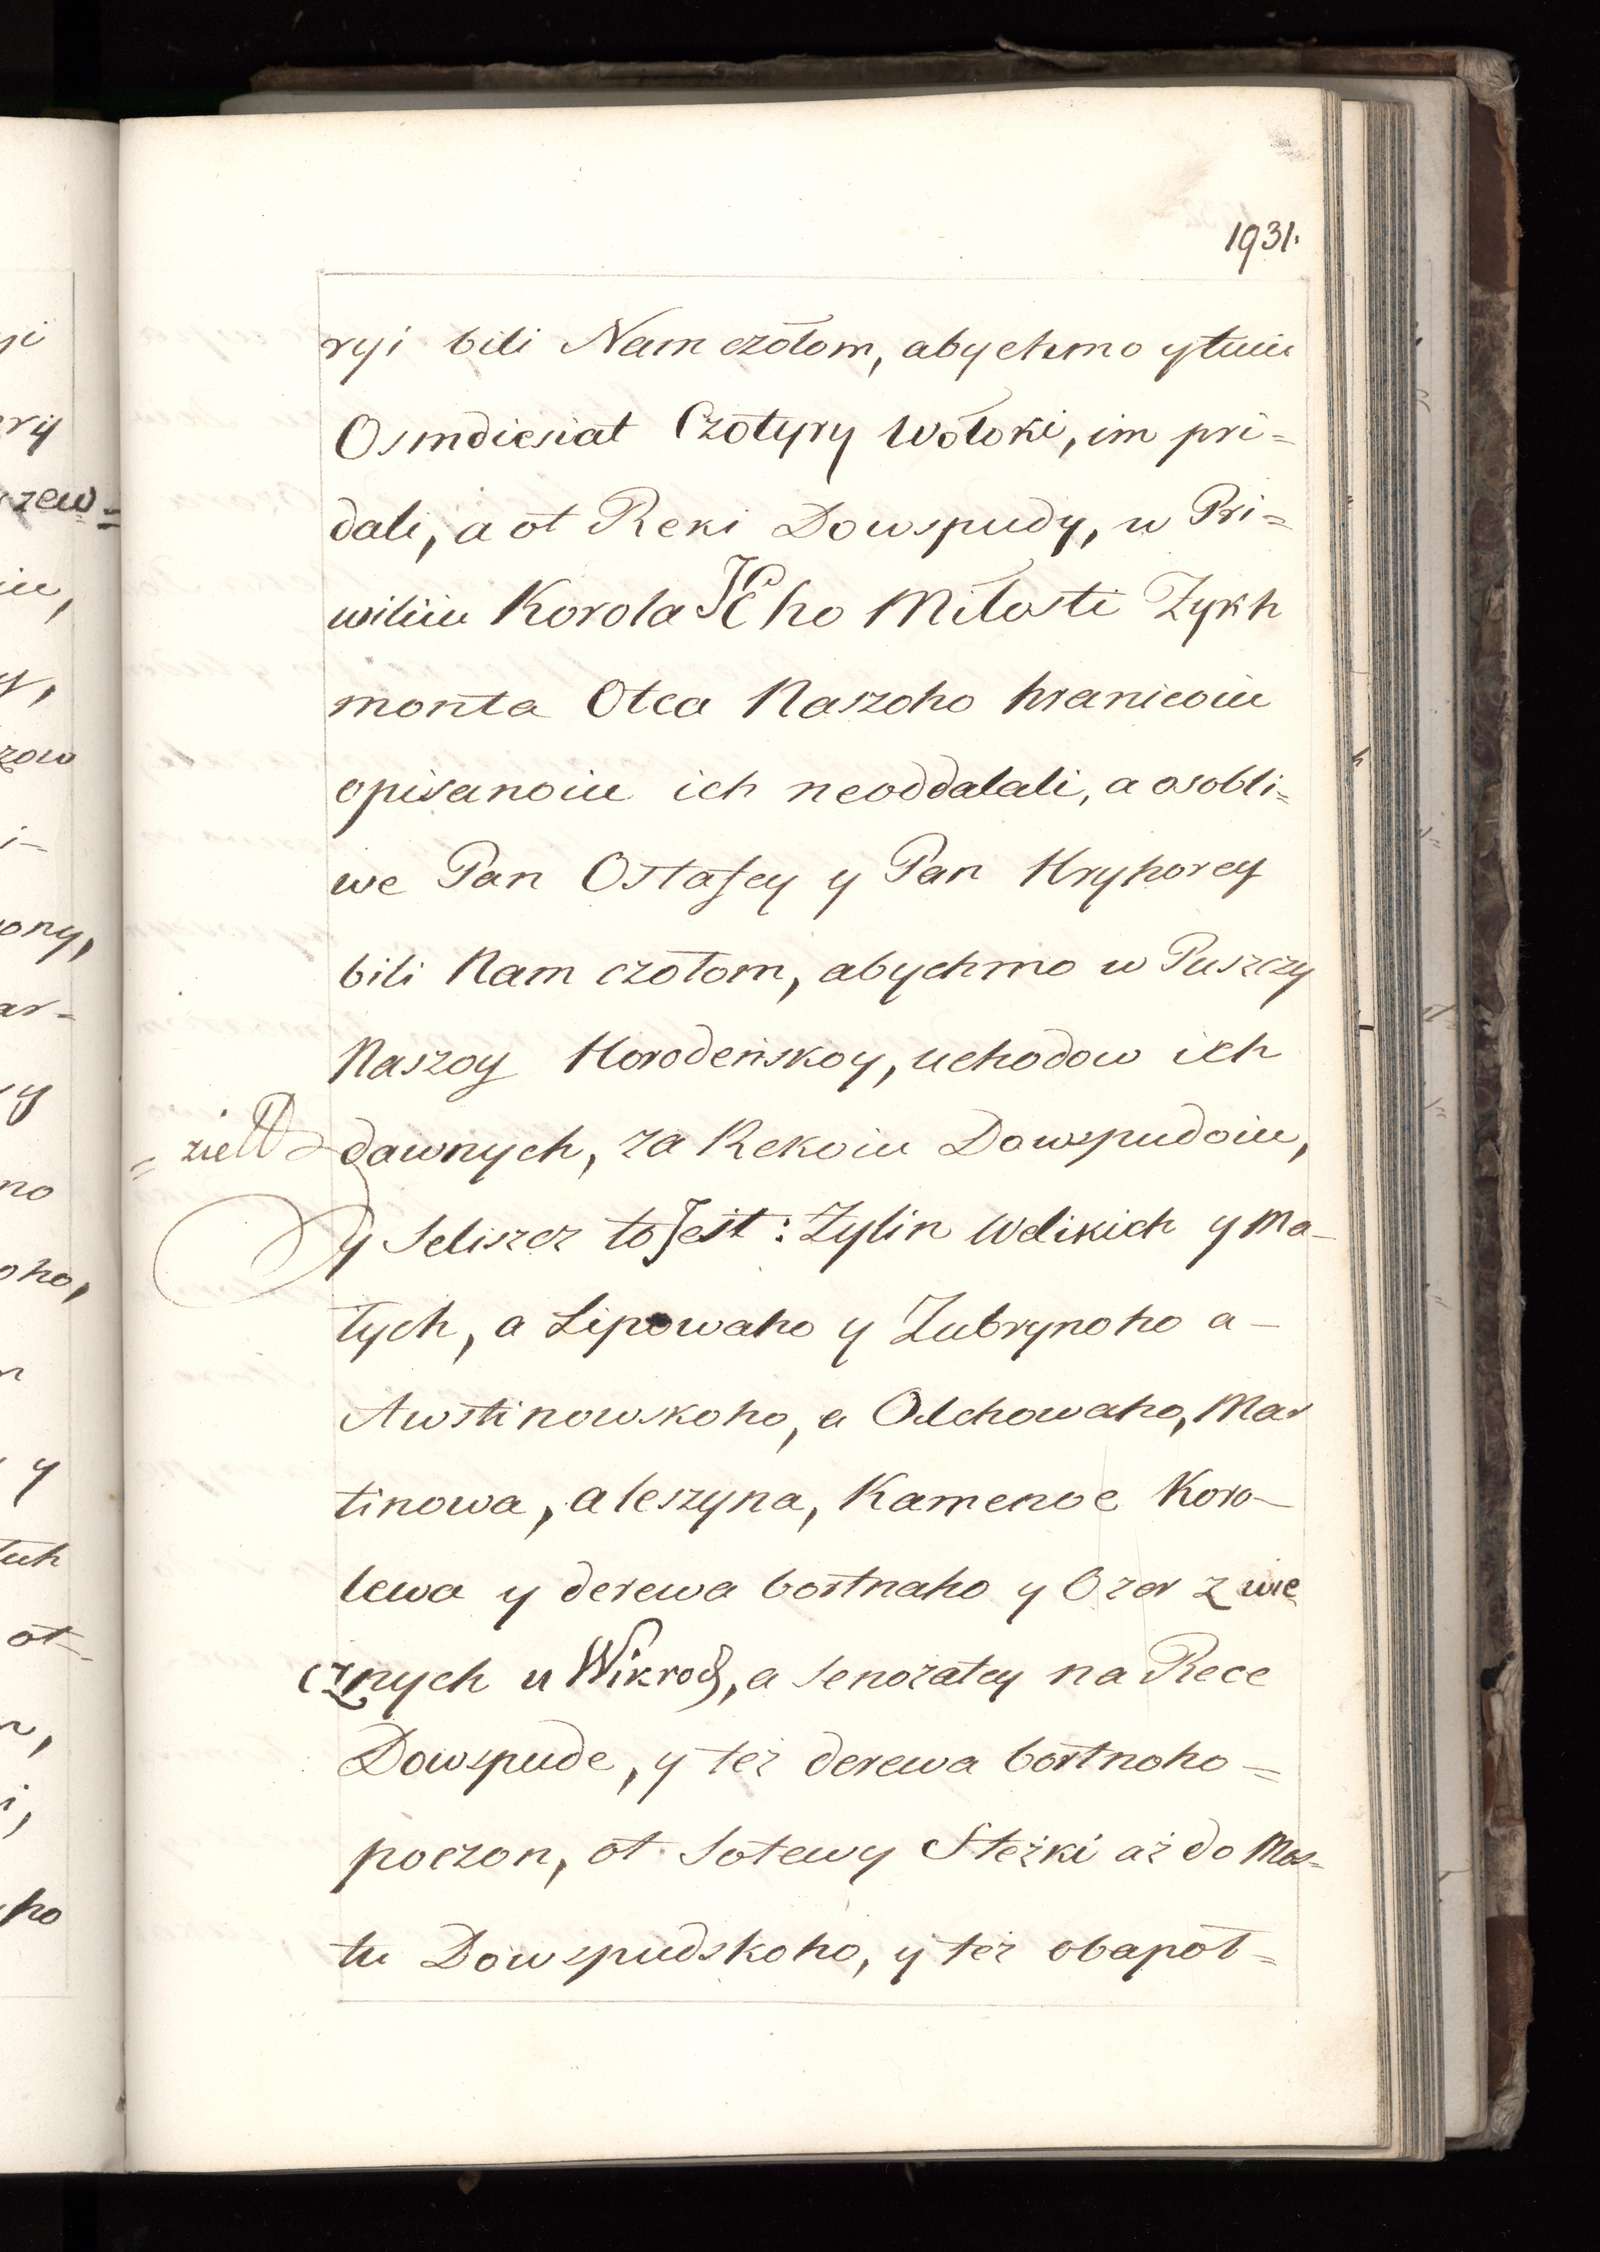 1931.
ryi bili Nam czołom, abychmo ytuiu
Osmdiesiat Czotyry Wołoki, im pri=
dali, a ot Reki Dowspudy, w Pri=
wiliiu Korola Jeho Miłosti Zykh
monta Otca Naszoho hranicoiu
opisanoiu ich neoddalali, a osobli=
we Pan Ostafey y Pan Hryhorey
bili Nam czołom, abychmo w Puszczy
Naszoy Horodeńskoy, uchodow ich
dawnych, za Rekoiu Dowspudoiu,
y Seliszcz to Jest: Zylin Welikich y Ma-
łych, a Lipowaho y Zubrynoho a-
Awstinowskoho, a Olchowaho, Mar
tinowa, a leszyna, Kamenoe Koro-
lewa y derewa bortnaho y Ozer z wie
cznych u Wikrod, a Senozatey na Rece
Dowspude, y też derewa bortnoho=
poczon, ot Sotewy Steżki aż do Mos=
tu Dowspudskoho, y też obapoł=
yi
ryi
zew=
iu,
y,
zow
i-
ony,
ar-
y
no
oho,
n
y
tuh
ot-
i,
ho